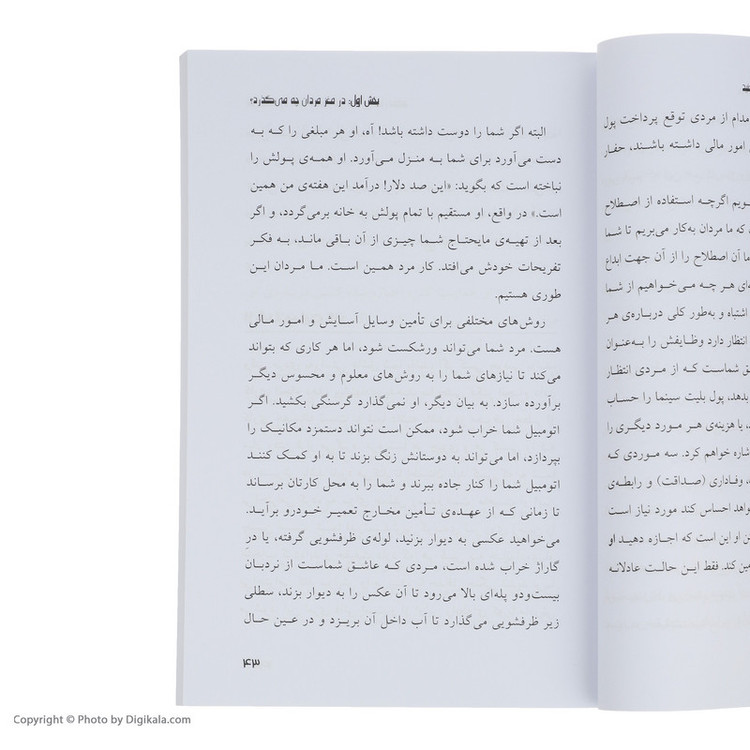 بخش اول: در مغز مردان چه می‌گذرد؟
البته اگر شما را دوست داشته باشد! آه، او هر مبلغی را که به
دست می‌آورد برای شما به منزل می‌آورد. او همه‌ی پولش را
نباخته است که بگوید: «این صد دلار! درآمد این هفته‌ی من همین
است.» در واقع، او مستقیم با تمام پولش به خانه برمی‌گردد، و اگر
بعد از تهیه‌ی مایحتاج شما چیزی از آن باقی ماند، به فکر
تفریحات خودش می‌افتد. کار مرد همین است. ما مردان این
طوری هستیم.
روش‌های مختلفی برای تأمین وسایل آسایش و امور مالی
هست. مرد شما می‌تواند ورشکست شود، اما هر کاری که بتواند
می‌کند تا نیازهای شما را به روش‌های معلوم و محسوس دیگر
برآورده سازد. به بیان دیگر، او نمی‌گذارد گرسنگی بکشید. اگر
اتومبیل شما خراب شود، ممکن است نتواند دستمزد مکانیک را
بپردازد، اما می‌تواند به دوستانش زنگ بزند تا به او کمک کنند
اتومبیل شما را کنار جاده ببرند و شما را به محل کارتان برساند
تا زمانی که از عهده‌ی تأمین مخارج تعمیر خودرو برآید.
می‌خواهید عکسی به دیوار بزنید، لوله‌ی ظرفشویی گرفته، یا درِ
گاراژ خراب شده است، مردی که عاشق شماست از نردبان
بیست‌ودو پله‌ای بالا می‌رود تا آن عکس را به دیوار بزند، سطلی
زیر ظرفشویی می‌گذارد تا آب داخل آن بریزد و در عین حال
۴۳
مدام از مردی توقع پرداخت پول
امور مالی داشته باشند، حفار
ویم اگرچه استفاده از اصطلاح
که ما مردان به‌کار می‌بریم تا شما
ما آن اصطلاح را از آن جهت ابداع
ه‌ای هر چه می‌خواهیم از شما
اشتباه و به‌طور کلی درباره‌ی هر
انتظار دارد وظایفش را به‌عنوان
ق شماست که از مردی انتظار
بدهد، پول بلیت سینما را حساب
، یا هزینه‌ی هر مورد دیگری را
شاره خواهم کرد. سه موردی که
، وفاداری (صداقت) و رابطه‌ی
واهد احساس کند مورد نیاز است
ن او این است که اجازه دهید او
مین کند. فقط این حالت عادلانه
Copyright © Photo by Digikala.com